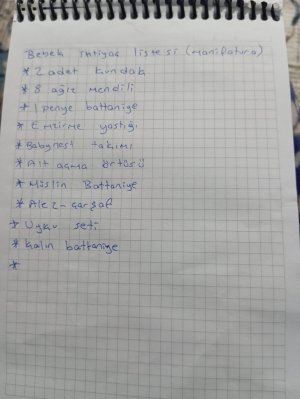 Bebek ihtiyaç listesi (manifatura)
* 2 adet kundak
* 8 ağız mendili
* 1 penye battaniye
* Emzirme yastığı
* Babynest takımı
* Alt açma örtüsü
* Müslin Battaniye
* Alez-çarşaf
* Uyku seti
* kalın battaniye
*